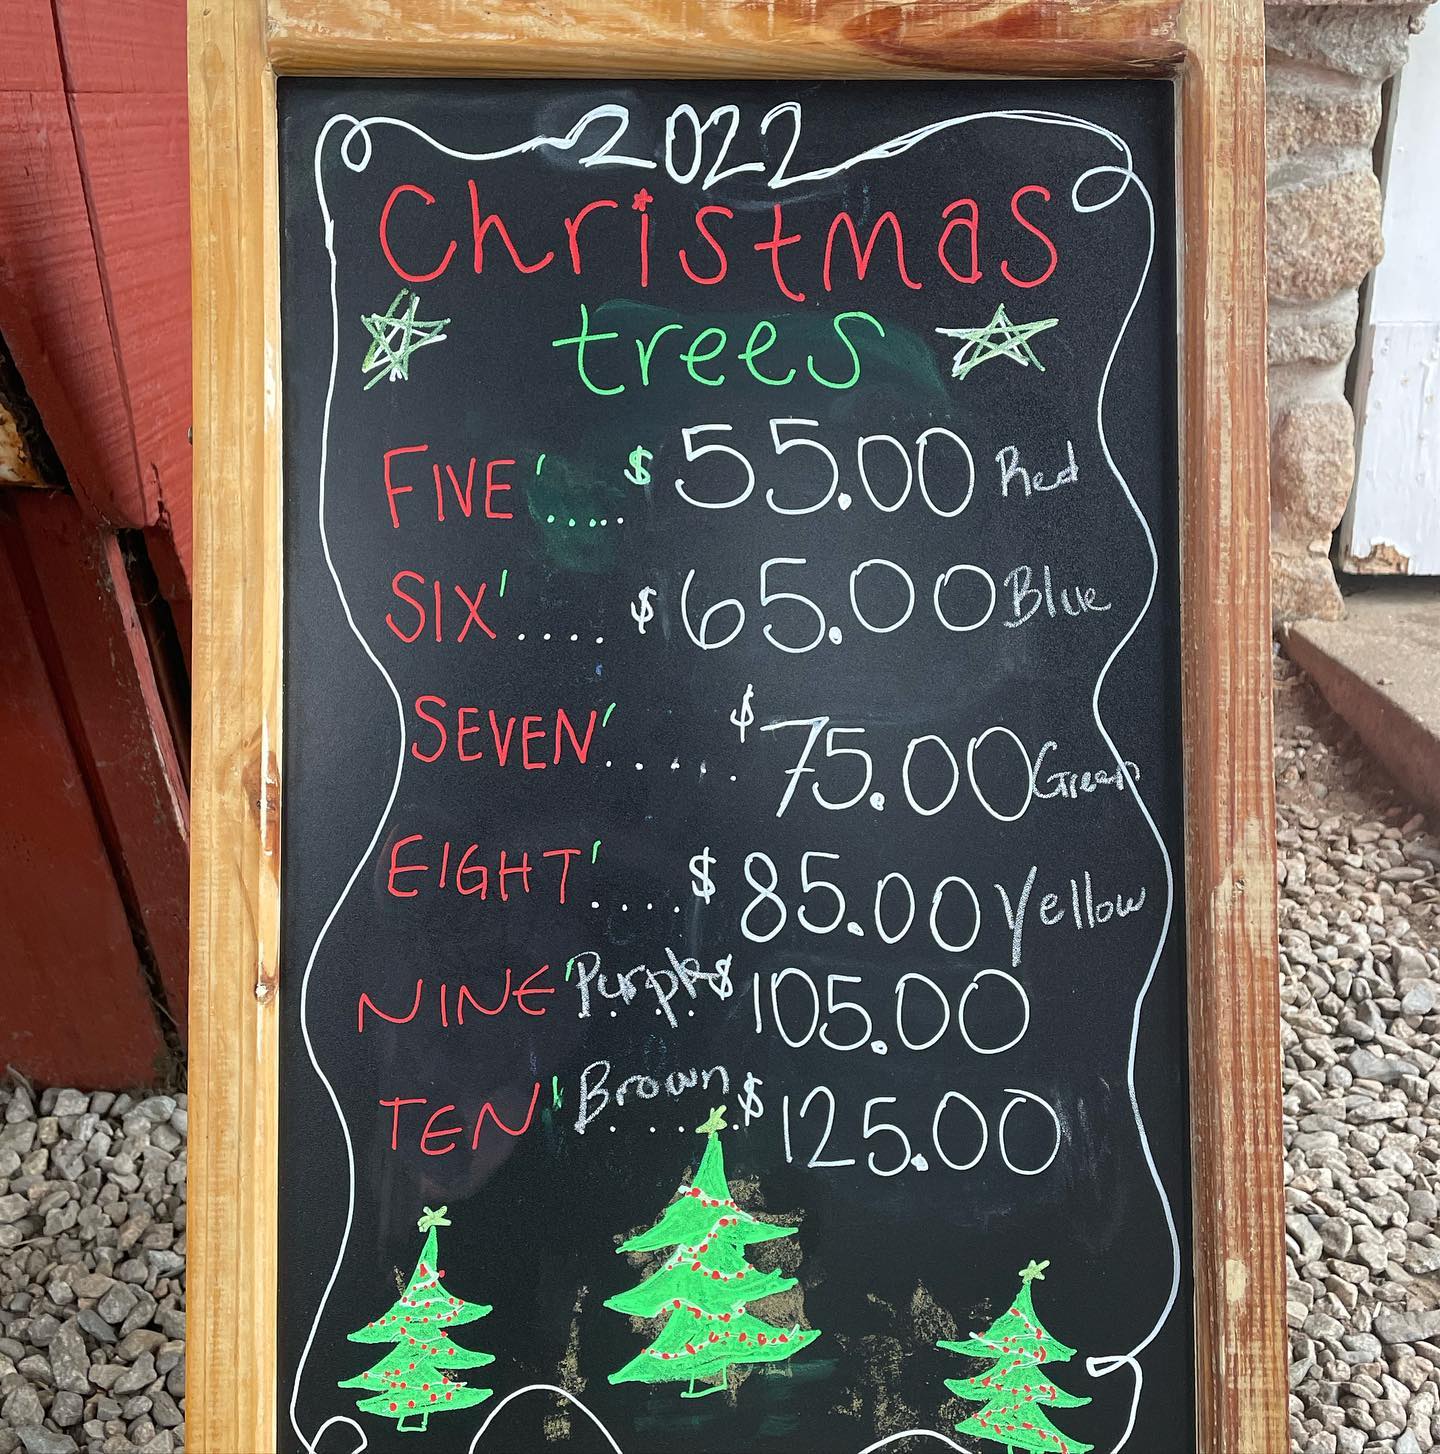 2022
Christmas
trees
FIVE' ..... $ 55.00 Red
SIX' .... $ 65.00 Blue
SEVEN' ..... $ 75.00 Green
EIGHT' .... $ 85.00 Yellow
NINE' Purple $ 105.00
TEN' Brown ..... $ 125.00